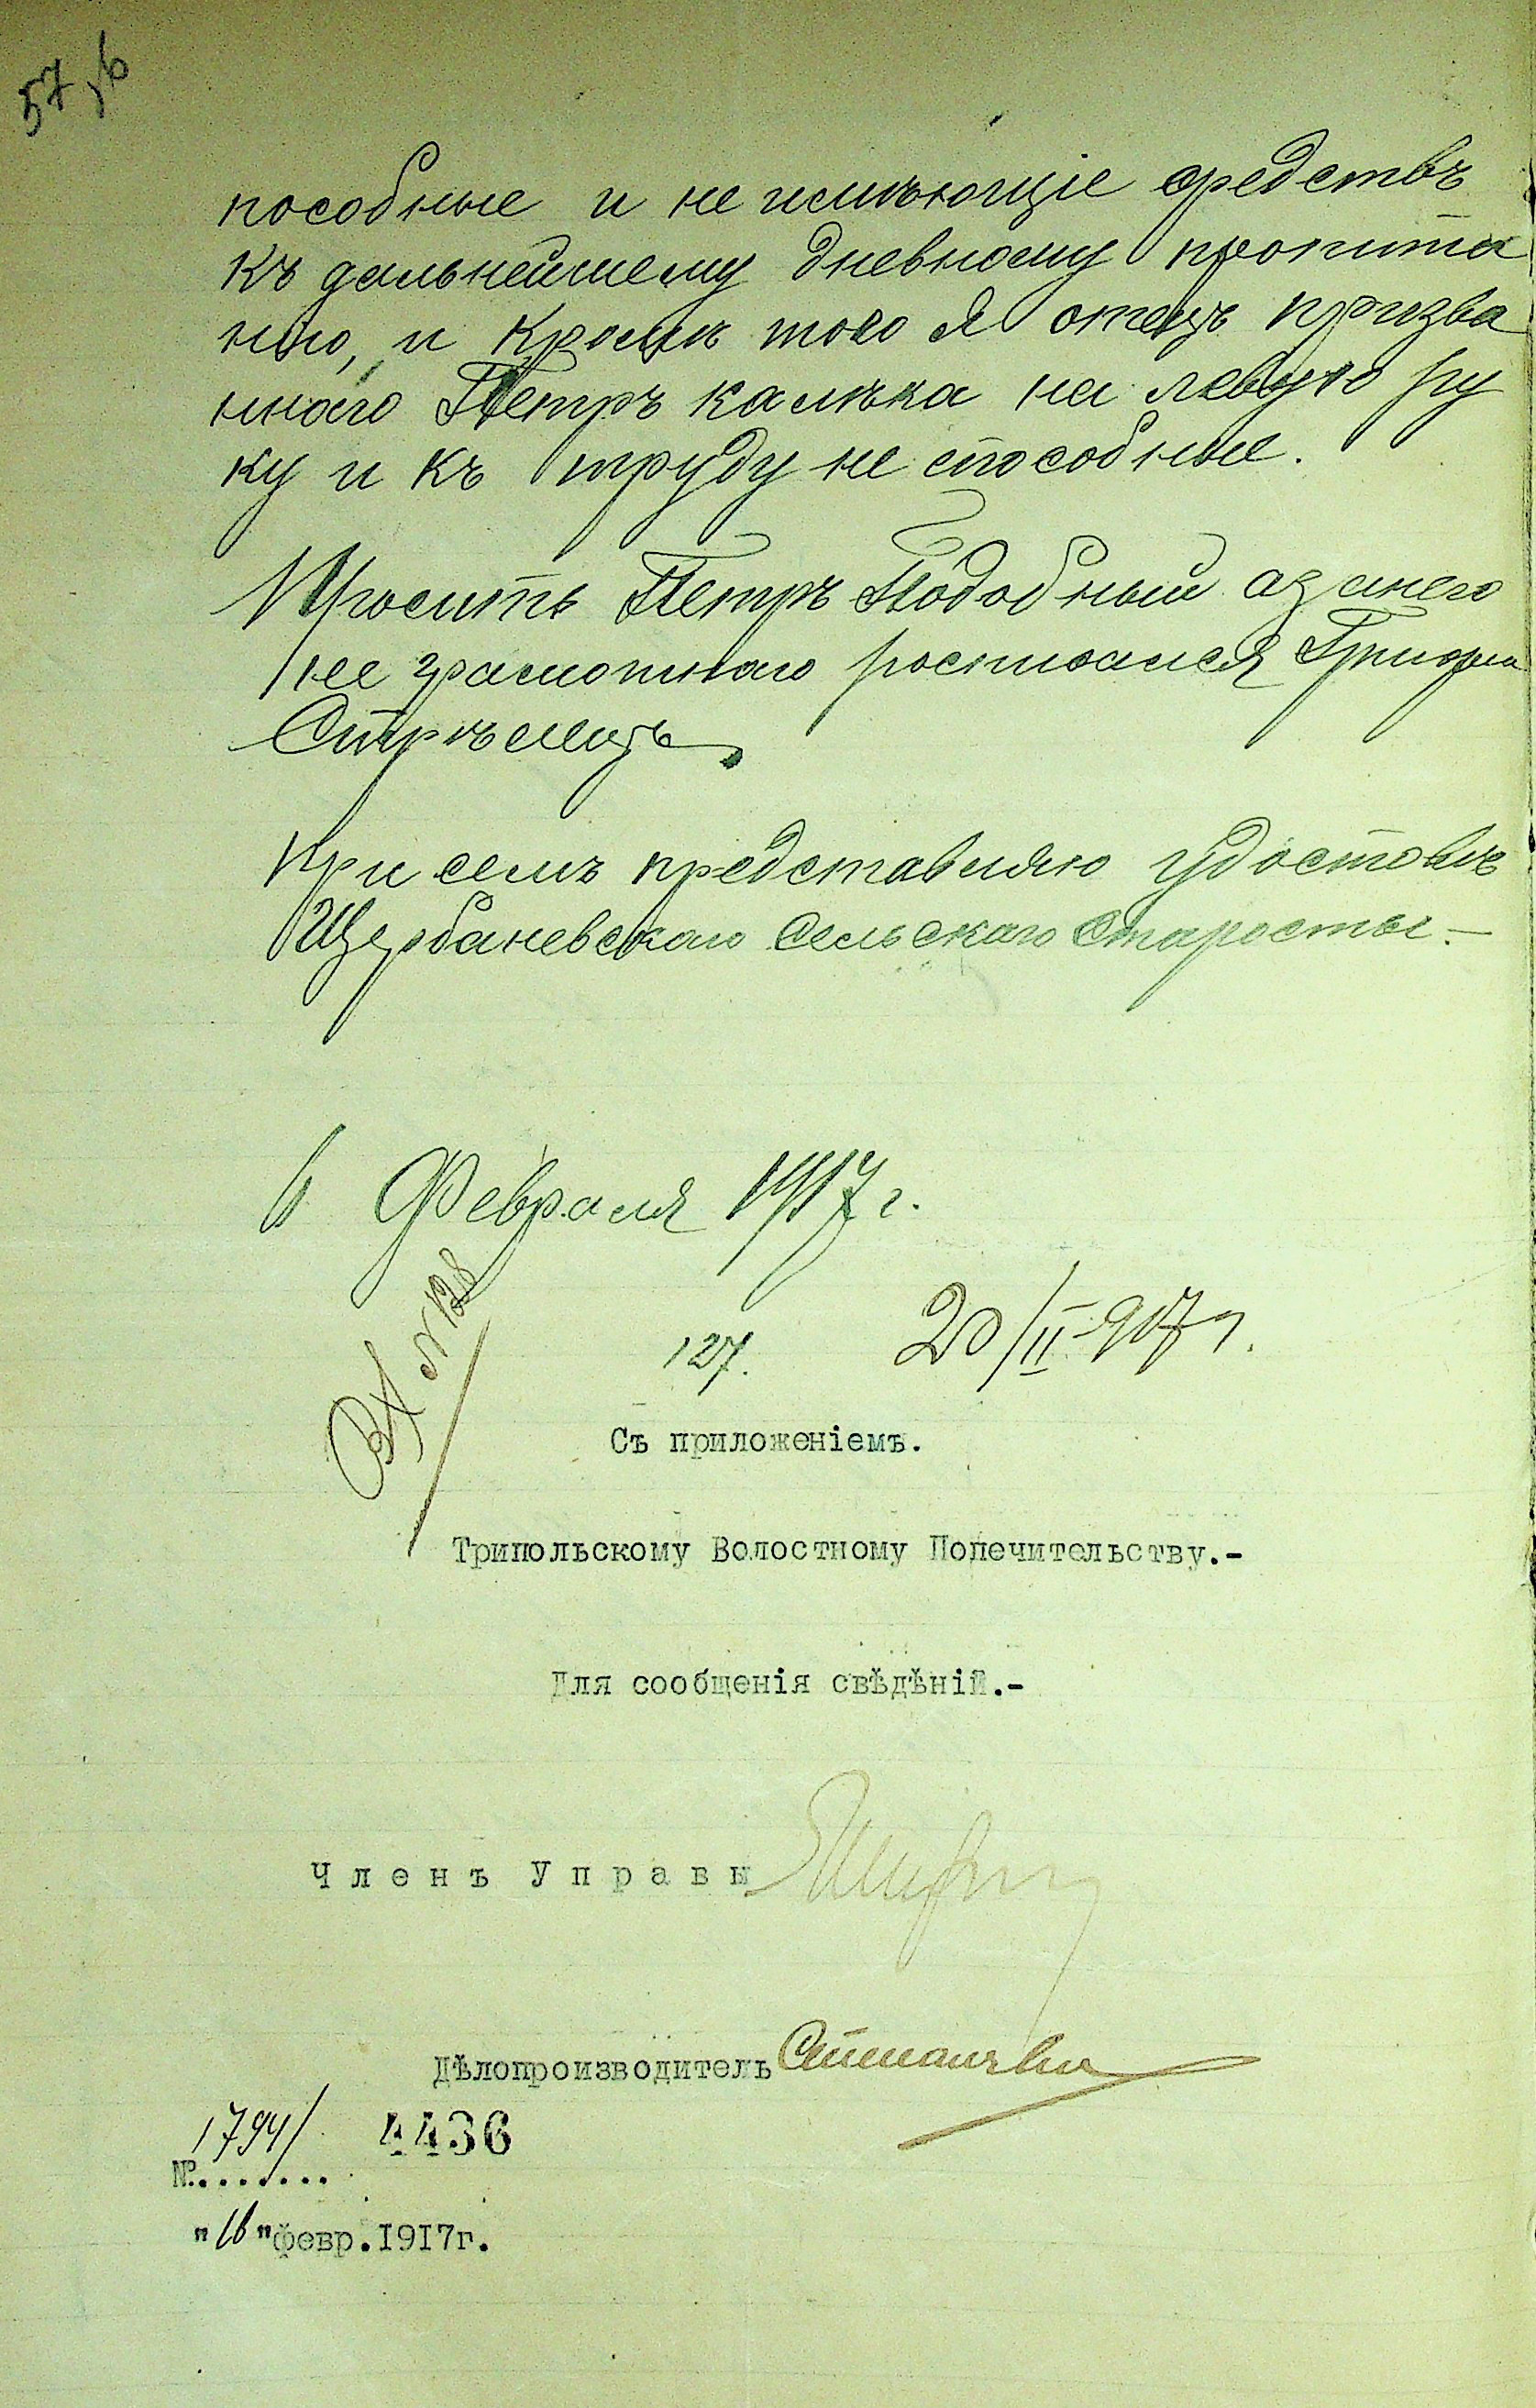 57 об
пособные и не имѣющіе средствъ
къ дальнейшему дневному пропита
нію, и Кромѣ того Я отецъ призва
ннаго Петръ калѣка на левую ру
ку и къ труду не способные.
Просить Петръ Подобный аза него
не грамотного росписался Григорій
при семъ представляю удостовѣ
Щербаневскаго Сельскаго Старосты.-
6 Февраля 1917 г.
Вх. № 128
127.
20/II 917 г.
Съ приложеніемъ.
Трипольскому Волостному Попечительству.-
Для сообщенія свѣдѣній.-
Членъ Управы
Дѣлопроизводитель
1794/ 4436
№.......
"16"февр.1917г.